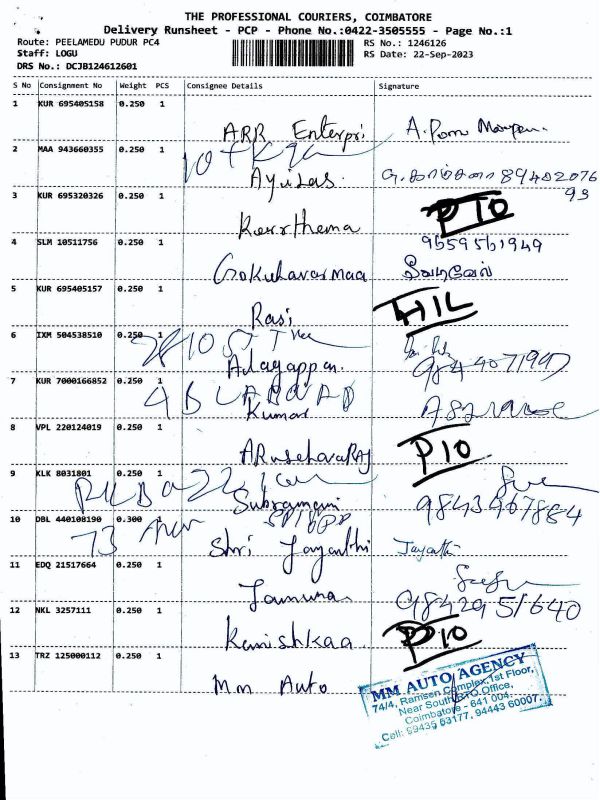 THE PROFESSIONAL COURIERS, COIMBATORE
Delivery Runsheet - PCP - Phone No.:0422-3505555 - Page No.:1
Route: PEELAMEDU PUDUR PC4
RS No.: 1246126
Staff: LOGU
RS Date: 22-Sep-2023
DRS No.: DCJB124612601
S No Consignment No Weight PCS Consignee Details Signature
1 KUR 695405158 0.250 1
ARR Enterpri.
2 MAA 943660355 0.250 1
Ayilas. 89402076
93
3 KUR 695320326 0.250 1
PTO
Kerrthema
4 SLM 10511756 0.250 1 9659561949
Gokulavarmaa
5 KUR 695405157 0.250 1
Rasi HIL
6 IXM 504538510 0.250 1
Alagappan. 9844071997
7 KUR 7000166852 0.250 1
Kumar
8 VPL 220124019 0.250 1
P10
9 KLK 8031801 0.250 1
Subramani 9843967884
10 DBL 440108190 0.300 1
Shri Jayanthi Jayanthi
11 EDQ 21517664 0.250 1
Jamuna 9842951640
12 NKL 3257111 0.250 1
Kanishkaa P10
13 TRZ 125000112 0.250 1
Mm Auto
MM AUTO AGENCY
74/4, Ramsen Complex,1st Floor,
Near South RTO Office,
Coimbatore - 641 004.
Cell: 99435 63177, 94443 60007.